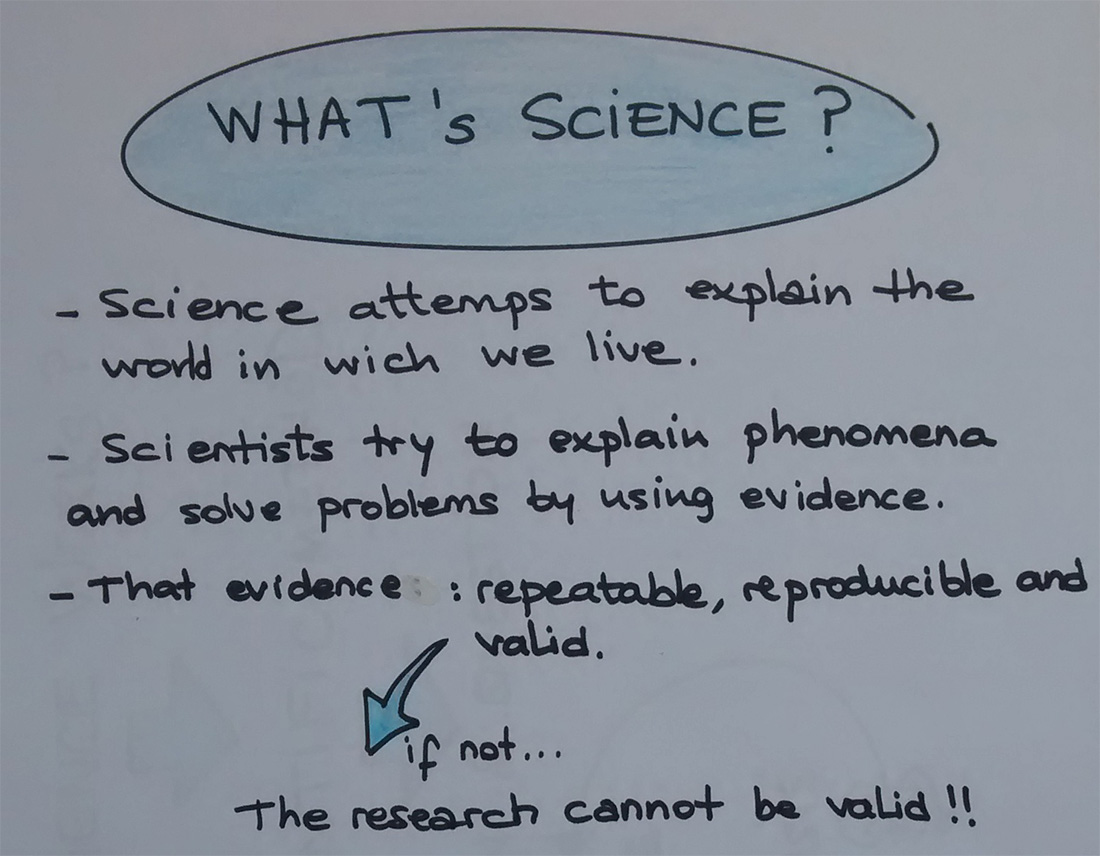 WHAT's SCiENCE ?
- Science attemps to explain the
world in wich we live.
- Scientists try to explain phenomena
and solve problems by using evidence.
- That evidence : repeatable, reproducible and
valid.
if not...
The research cannot be valid !!